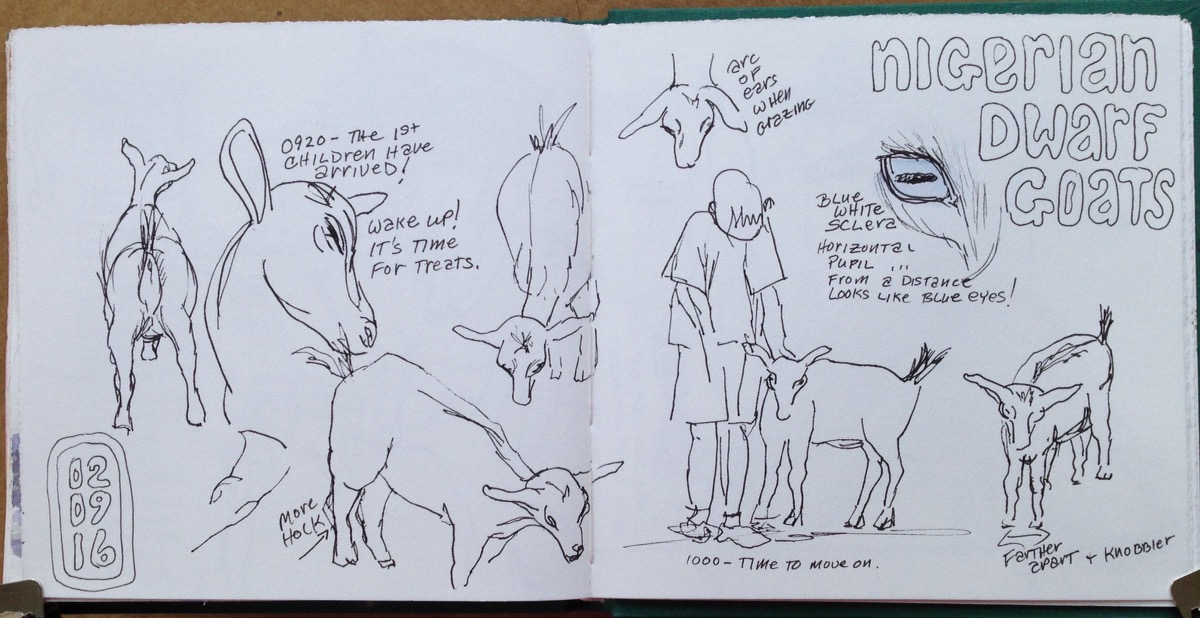 0920 - THE 1ST
CHILDREN HAVE
ARRIVED!
WAKE UP!
IT'S TIME
FOR TREATS.
MORE
HOCK
02
09
16
NIGERIAN
DWARF
GOATS
ARC
OF
EARS
WHEN
GRAZING
BLUE
WHITE
SCLERA
HORIZONTAL
PUPIL ...
FROM A DISTANCE
LOOKS LIKE BLUE EYES!
1000 - TIME TO MOVE ON.
FARTHER
APART + KNOBBIER